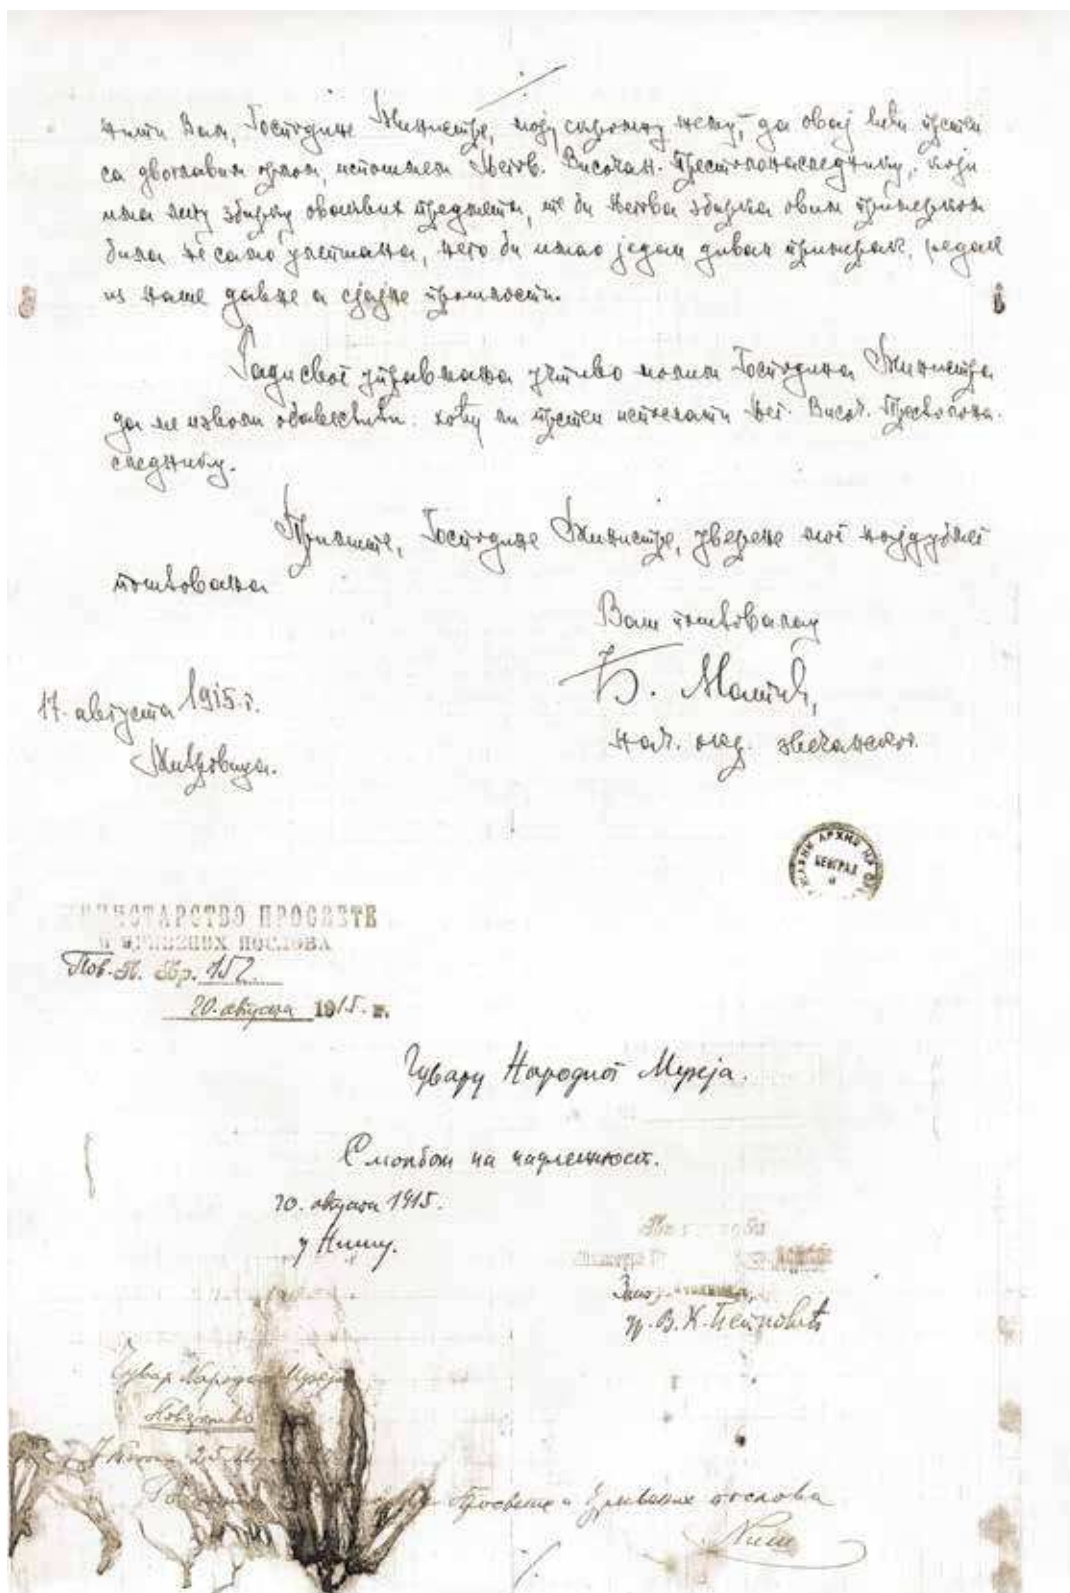 ћити Вам, Господине Министре, моју скромну жељу, да овај леп прстен
са двоглавим орлом, испошљем Његов. Височан. Престолонаследнику, који
има лепу збирку оваквих предмета, те би његова збирка овим примерком
била не само увећана, него би имао један диван примерак, редак
из наше давне а сјајне прошлости.
Ради свог управљања учтиво молим Господина Министра
да ме изволи обавестити: хоћу ли прстен испослати Њег. Височ. Престолона-
следнику.
Примите, Господине Министре, уверење мог најдубљег
поштовања
Ваш поштовалац
Б. Малић,
нач. окр. звечанског
17. августа 1915. г.
Митровица.
БЕОГРАД
МИНИСТАРСТВО ПРОСВЕТЕ
И ЦРКВЕНИХ ПОСЛОВА
Пов. П. Бр. 152
20. августа 1915. г.
Чувару Народног Музеја.
С молбом на надлежност.
20. августа 1915.
у Нишу.
др. В. К. Петровић
Чувар Народног Музеја
25
Просвете и Црквених послова
Ниш